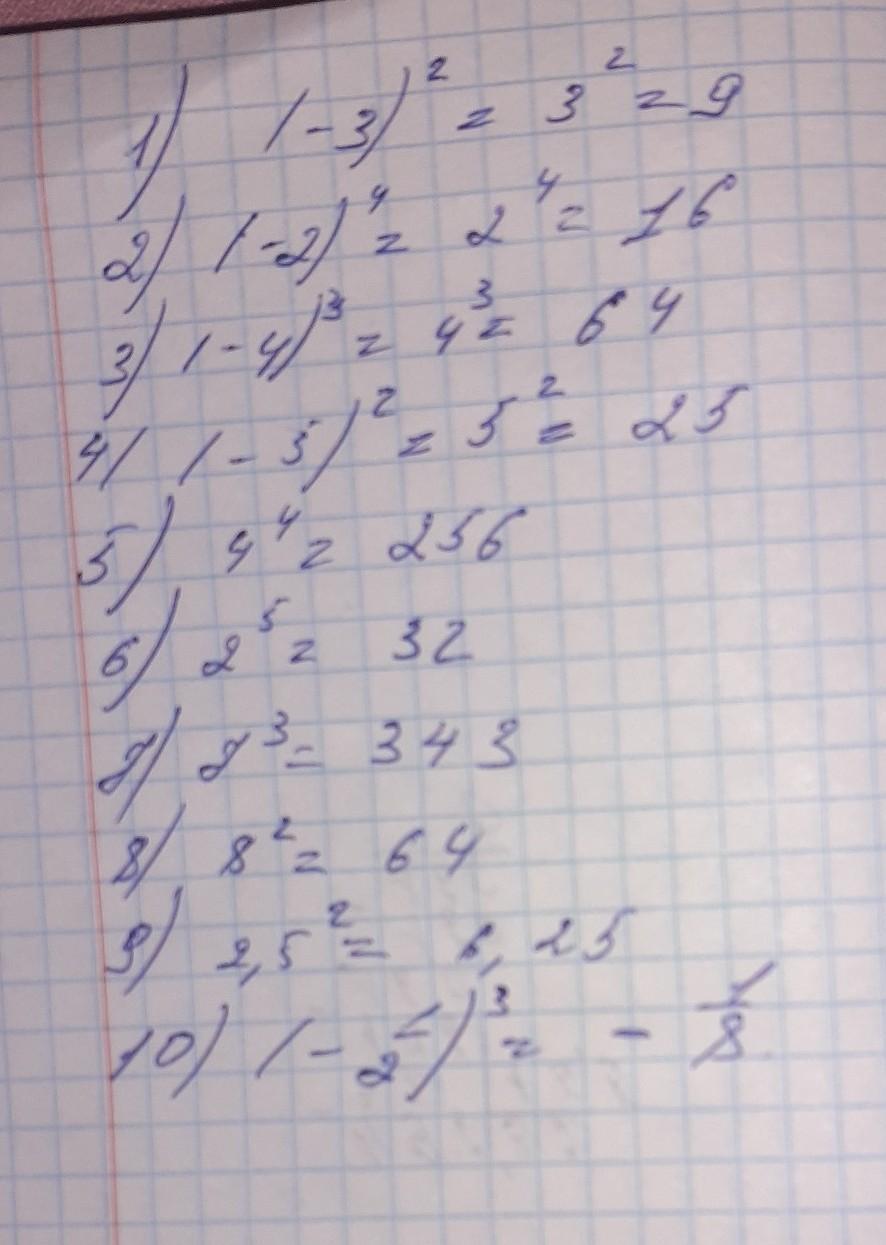 1) (-3)² = 3² = 9
2) (-2)⁴ = 2⁴ = 16
3) (-4)³ = 4³ = 64
4) (-5)² = 5² = 25
5) 4⁴ = 256
6) 2⁵ = 32
7) 7³ = 343
8) 8² = 64
9) 2,5² = 6,25
10) (-1/2)³ = - 1/8